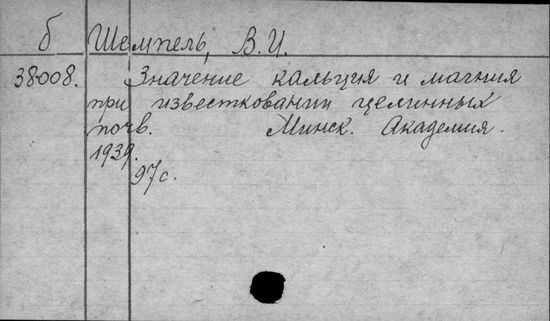 б Шемпель, В.И.
38008. Значение кальция и магния
при известковании целинных
почв. Минск. Академия.
1939.
97 с.